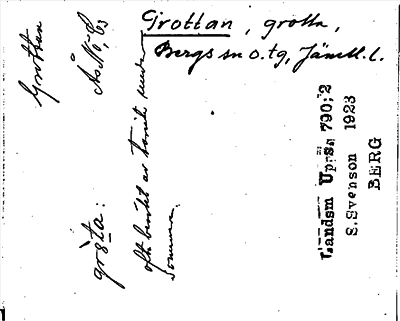 Grottan, grotta,
Bergs sn o. tg, Jämtl. l.
Grottan
grǒta:
ofta
av
sommaren.
Landsm Upps 790:2
S. Svenson 1923
BERG